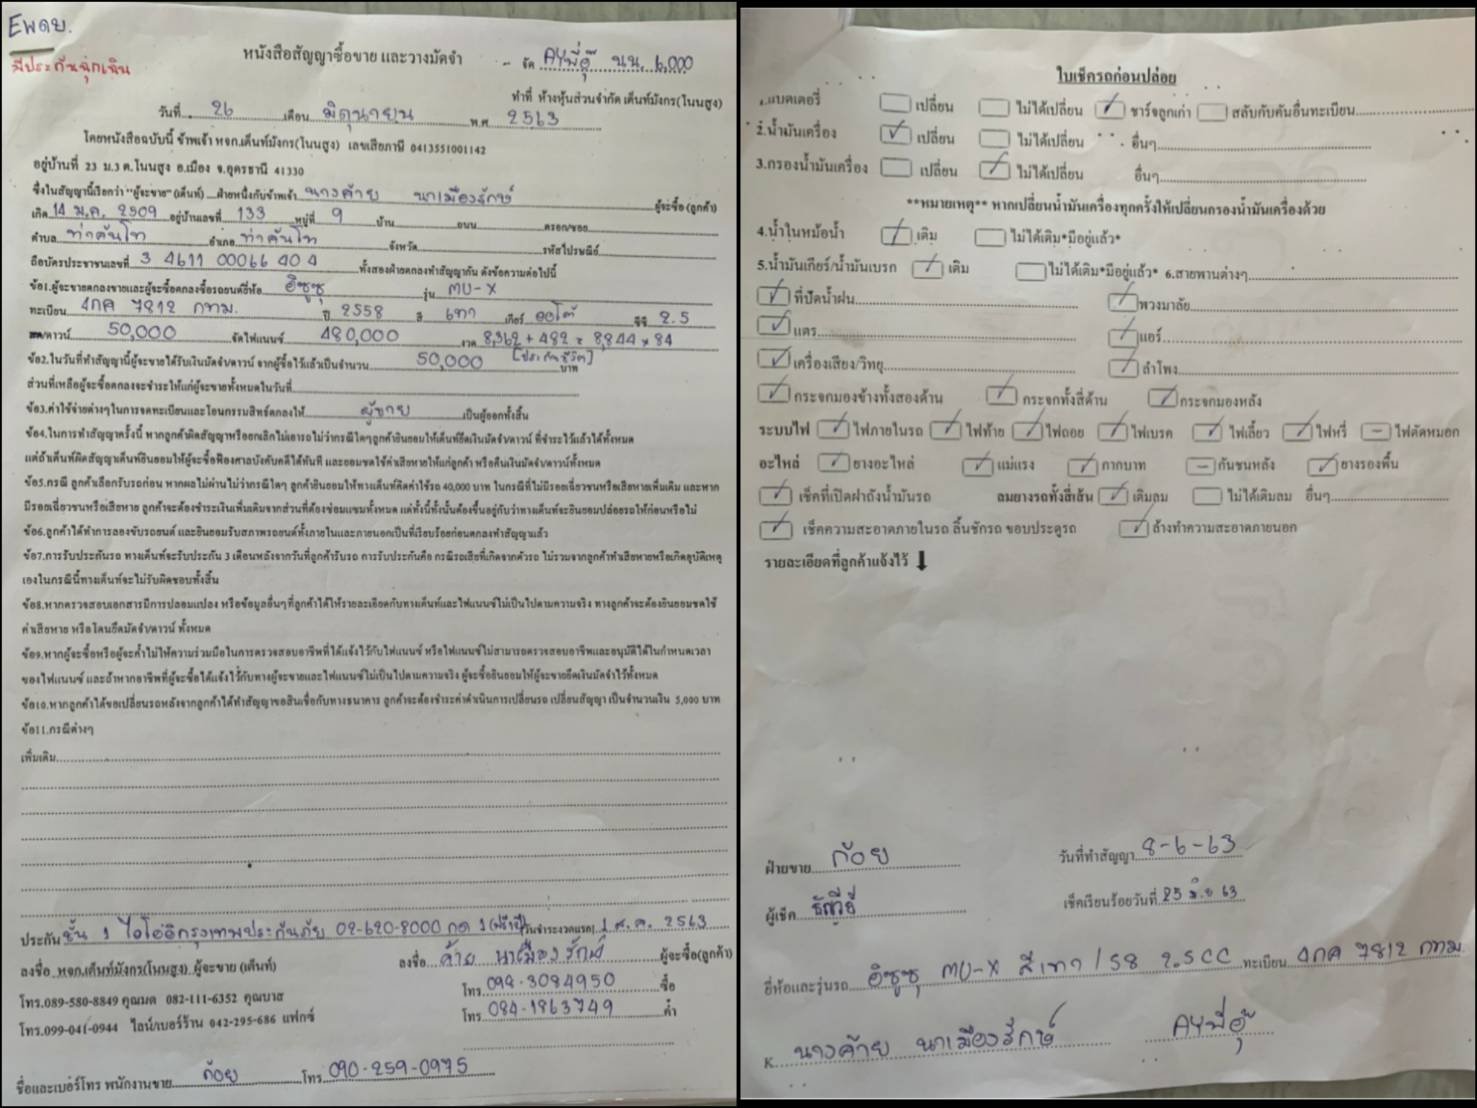 Eพดย.
มีประกันฉุกเฉิน
หนังสือสัญญาซื้อขาย และวางมัดจำ
- จัด AYพี่อุ๊ นน. 6,000
ทำที่ ห้างหุ้นส่วนจำกัด เต็นท์มังกร(โนนสูง)
วันที่ 26 เดือน มิถุนายน พ.ศ 2563
โดยหนังสือฉบับนี้ ข้าพเจ้า หจก.เต็นท์มังกร(โนนสูง) เลขเสียภาษี 0413551001142
อยู่บ้านที่ 23 ม.3 ต.โนนสูง อ.เมือง จ.อุดรธานี 41330
ซึ่งในสัญญานี้เรียกว่า "ผู้จะขาย" (เต็นท์) ฝ่ายหนึ่งกับข้าพเจ้า นางค้าย นาเมืองรักษ์ ผู้จะซื้อ (ลูกค้า)
เกิด 14 ม.ค. 2509 อยู่บ้านเลขที่ 133 หมู่ที่ 9 บ้าน ถนน ตรอก/ซอย
ตำบล ท่าคันโท อำเภอ ท่าคันโท จังหวัด รหัสไปรษณีย์
ถือบัตรประชาชนเลขที่ 3 4611 00066 40 4 ทั้งสองฝ่ายตกลงทำสัญญากัน ดังข้อความต่อไปนี้
ข้อ1.ผู้จะขายตกลงขายและผู้จะซื้อตกลงซื้อรถยนต์ยี่ห้อ อีซูซุ รุ่น MU-X
ทะเบียน 4กค 7812 กทม. ปี 2558 สี เทา เกียร์ ออโต้ ซีซี 2.5
สด/ดาวน์ 50,000 จัดไฟแนนซ์ 480,000 งวด 8,362 + 482 = 8,844 x 84
[ประกันชีวิต]
ข้อ2.ในวันที่ทำสัญญานี้ผู้จะขายได้รับเงินมัดจำ/ดาวน์ จากผู้ซื้อไว้แล้วเป็นจำนวน 50,000 บาท
ส่วนที่เหลือผู้จะซื้อตกลงจะชำระให้แก่ผู้จะขายทั้งหมดในวันที่
ข้อ3.ค่าใช้จ่ายต่างๆในการจดทะเบียนและโอนกรรมสิทธ์ตกลงให้ ผู้ขาย เป็นผู้ออกทั้งสิ้น
ข้อ4.ในการทำสัญญาครั้งนี้ หากลูกค้าผิดสัญญาหรือยกเลิกไม่เอารถ ไม่ว่ากรณีใดๆลูกค้ายินยอมให้เต็นท์ยึดเงินมัดจำ/ดาวน์ ที่ชำระไว้แล้วได้ทั้งหมด
แต่ถ้าเต็นท์ผิดสัญญาเต็นท์ยินยอมให้ผู้จะซื้อฟ้องศาลบังคับคดีได้ทันที และยอมชดใช้ค่าเสียหายให้แก่ลูกค้า หรือคืนเงินมัดจำ/ดาวน์ทั้งหมด
ข้อ5.กรณี ลูกค้าเลือกรับรถก่อน หากผลไม่ผ่านไม่ว่ากรณีใดๆ ลูกค้ายินยอมให้ทางเต็นท์คิดค่าใช้รถ 40,000 บาท ในกรณีที่ไม่มีรอยเฉี่ยวชนหรือเสียหายเพิ่มเติม และหาก
มีรอยเฉี่ยวชนหรือเสียหาย ลูกค้าจะต้องชำระเงินเพิ่มเติมจากส่วนที่ต้องซ่อมแซมทั้งหมด แต่ทั้งนี้ทั้งนั้นต้องขึ้นอยู่กับว่าทางเต็นท์จะยินยอมปล่อยรถให้ก่อนหรือไม่
ข้อ6.ลูกค้าได้ทำการลองขับรถยนต์ และยินยอมรับสภาพรถยนต์ทั้งภายในและภายนอกเป็นที่เรียบร้อยก่อนตกลงทำสัญญาแล้ว
ข้อ7.การรับประกันรถ ทางเต็นท์จะรับประกัน 3 เดือนหลังจากวันที่ลูกค้ารับรถ การรับประกันคือ กรณีรถเสียที่เกิดจากตัวรถ ไม่รวมจากลูกค้าทำเสียหายหรือเกิดอุบัติเหตุ
เองในกรณีนี้ทางเต็นท์จะไม่รับผิดชอบทั้งสิ้น
ข้อ8.หากตรวจสอบเอกสารมีการปลอมแปลง หรือข้อมูลอื่นๆที่ลูกค้าได้ให้รายละเอียดกับทางเต็นท์และไฟแนนซ์ไม่เป็นไปตามความจริง ทางลูกค้าจะต้องยินยอมชดใช้
ค่าเสียหาย หรือโดนยึดมัดจำ/ดาวน์ ทั้งหมด
ข้อ9.หากผู้จะซื้อหรือผู้จะค้ำไม่ให้ความร่วมมือในการตรวจสอบอาชีพที่ได้แจ้งไว้กับไฟแนนซ์ หรือไฟแนนซ์ไม่สามารถตรวจสอบอาชีพและอนุมัติได้ในกำหนดเวลา
ของไฟแนนซ์ และถ้าหากอาชีพที่ผู้จะซื้อได้แจ้งไว้กับทางผู้จะขายและไฟแนนซ์ไม่เป็นไปตามความจริง ผู้จะซื้อยินยอมให้ผู้จะขายยึดเงินมัดจำไว้ทั้งหมด
ข้อ10.หากลูกค้าได้ขอเปลี่ยนรถหลังจากลูกค้าได้ทำสัญญาขอสินเชื่อกับทางธนาคาร ลูกค้าจะต้องชำระค่าดำเนินการเปลี่ยนรถ เปลี่ยนสัญญา เป็นจำนวนเงิน 5,000 บาท
ข้อ11.กรณีต่างๆ
เพิ่มเติม
ประกัน ชั้น 1 ไอโออิกรุงเทพประกันภัย 02-620-8000 กด 1 (ฟรี 1ปี) วันชำระงวดแรก 1 ส.ค. 2563
ลงชื่อ หจก.เต็นท์มังกร(โนนสูง) ผู้จะขาย (เต็นท์) ลงชื่อ ค้าย นาเมืองรักษ์ ผู้จะซื้อ(ลูกค้า)
โทร.089-580-8849 คุณมด 082-111-6352 คุณบาส โทร 094-3084950 ซื้อ
โทร.099-041-0944 ไลน์/เบอร์ร้าน 042-295-686 แฟกซ์ โทร 084-1863749 ค้ำ
ชื่อและเบอร์โทร พนักงานขาย ก้อย โทร 090-259-0975
ใบเช็ครถก่อนปล่อย
1.แบตเตอรี่ เปลี่ยน ไม่ได้เปลี่ยน ชาร์จลูกเก่า สลับกับคันอื่นทะเบียน
2.น้ำมันเครื่อง เปลี่ยน ไม่ได้เปลี่ยน อื่นๆ
3.กรองน้ำมันเครื่อง เปลี่ยน ไม่ได้เปลี่ยน อื่นๆ
**หมายเหตุ** หากเปลี่ยนน้ำมันเครื่องทุกครั้งให้เปลี่ยนกรองน้ำมันเครื่องด้วย
4.น้ำในหม้อน้ำ เติม ไม่ได้เติม*มีอยู่แล้ว*
5.น้ำมันเกียร์/น้ำมันเบรก เติม ไม่ได้เติม*มีอยู่แล้ว* 6.สายพานต่างๆ
ที่ปัดน้ำฝน พวงมาลัย
แตร แอร์
เครื่องเสียง/วิทยุ ลำโพง
กระจกมองข้างทั้งสองด้าน กระจกทั้งสี่ด้าน กระจกมองหลัง
ระบบไฟ ไฟภายในรถ ไฟท้าย ไฟถอย ไฟเบรค ไฟเลี้ยว ไฟหรี่ ไฟตัดหมอก
อะไหล่ ยางอะไหล่ แม่แรง กากบาท กันชนหลัง ยางรองพื้น
เช็คที่เปิดฝาถังน้ำมันรถ ลมยางรถทั้งสี่เส้น เติมลม ไม่ได้เติมลม อื่นๆ
เช็คความสะอาดภายในรถ ลิ้นชักรถ ขอบประตูรถ ล้างทำความสะอาดภายนอก
รายละเอียดที่ลูกค้าแจ้งไว้
ฝ่ายขาย ก้อย วันที่ทำสัญญา 8-6-63
ผู้เช็ค เช็คเรียบร้อยวันที่ 25 มิ.ย 63
ยี่ห้อและรุ่นรถ อีซูซุ MU-X สีเทา /58 2.5 CC ทะเบียน 4กค 7812 กทม.
K นางค้าย นาเมืองรักษ์ AYพี่อุ๊